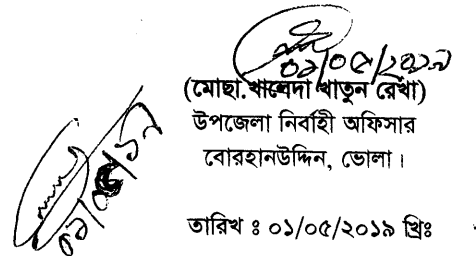 ০১/০৫/২০১৯
(মোছা.খালেদা খাতুন রেখা)
উপজেলা নির্বাহী অফিসার
বোরহানউদ্দিন, ভোলা।
তারিখ ঃ ০১/০৫/২০১৯ খ্রিঃ